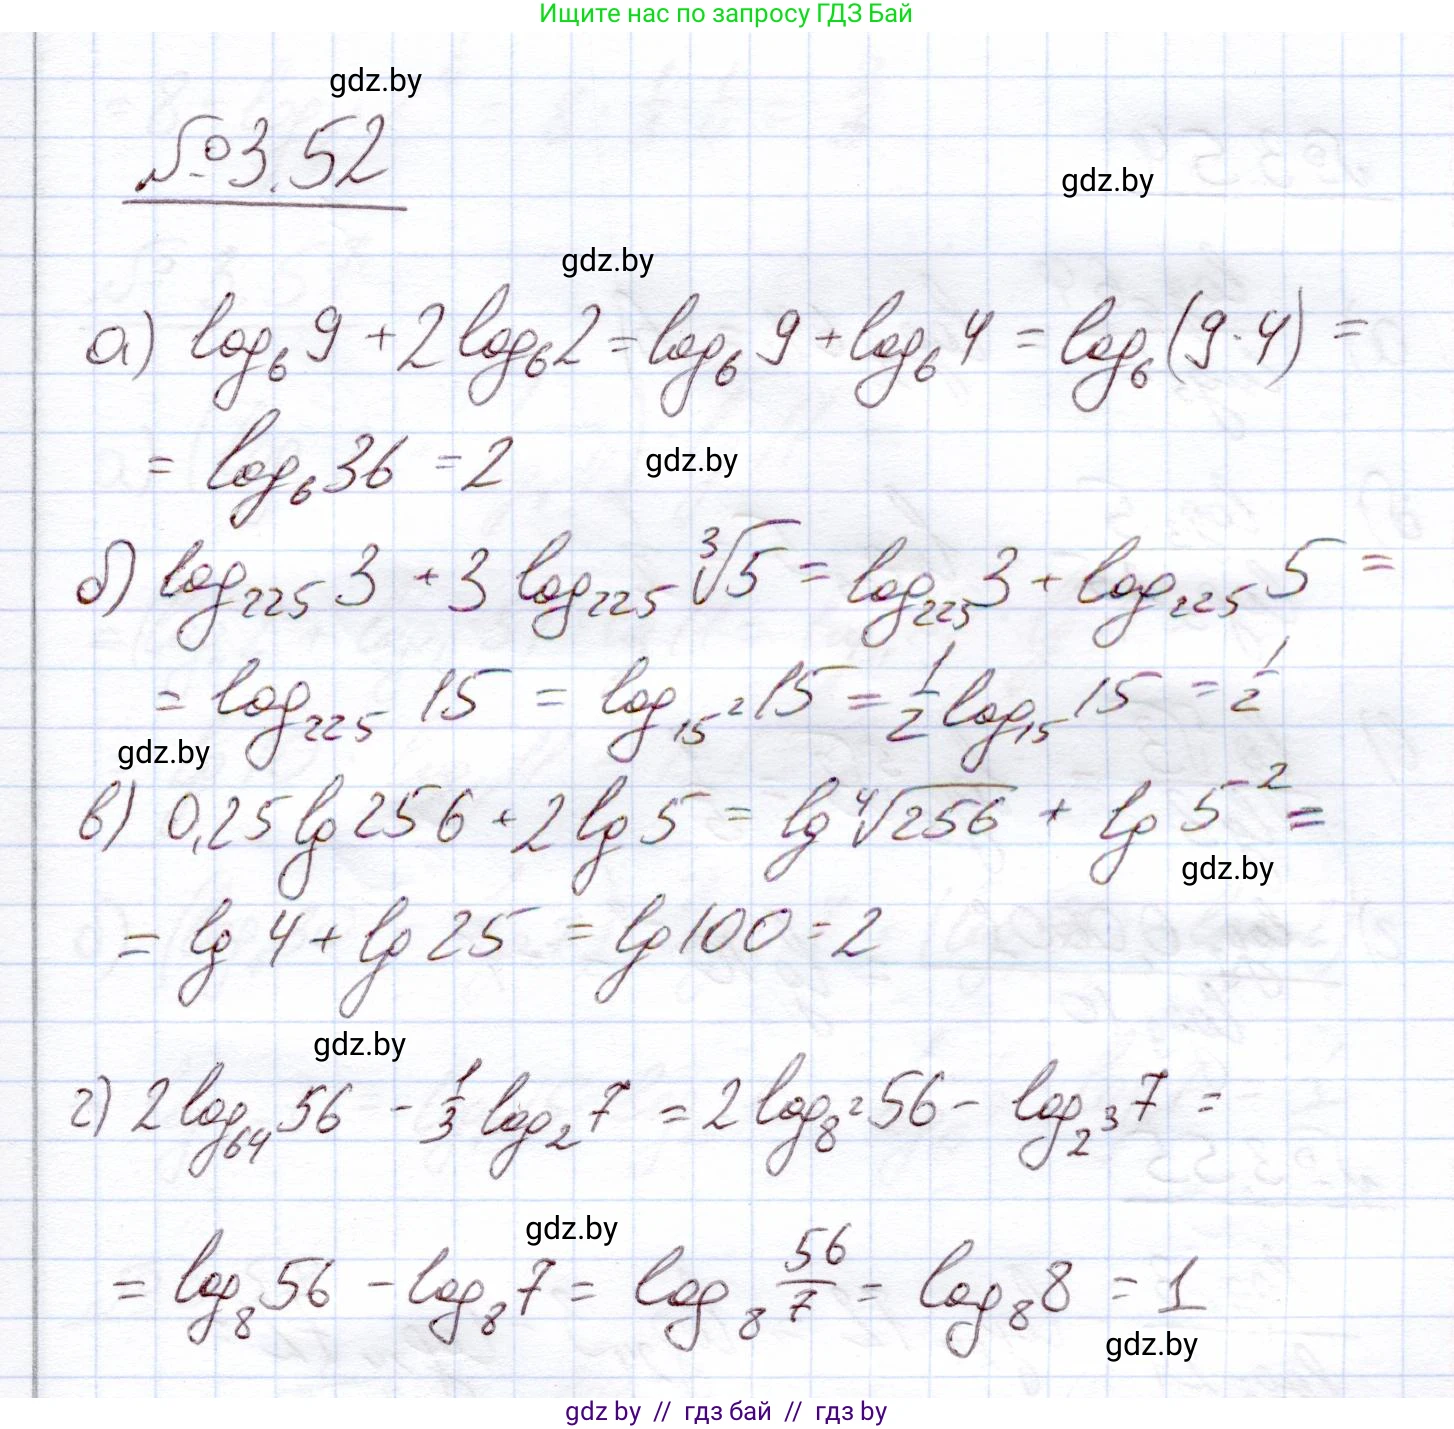 Ищите нас по запросу ГДЗ Бай
gdz.by
№3.52
gdz.by
gdz.by
а) log₆ 9 + 2 log₆ 2 = log₆ 9 + log₆ 4 = log₆ (9·4) =
= log₆ 36 = 2
gdz.by
б) log₂₂₅ 3 + 3 log₂₂₅ ∛5 = log₂₂₅ 3 + log₂₂₅ 5 =
= log₂₂₅ 15 = log_{15²} 15 = 1/2 log₁₅ 15 = 1/2
gdz.by
в) 0,25 lg 256 + 2 lg 5 = lg ∜256 + lg 5² =
gdz.by
= lg 4 + lg 25 = lg 100 = 2
gdz.by
г) 2 log₆₄ 56 - 1/3 log₂ 7 = 2 log_{8²} 56 - log_{2³} 7 =
gdz.by
= log₈ 56 - log₈ 7 = log₈ 56/7 = log₈ 8 = 1
gdz.by
gdz by // гдз бай // гдз by